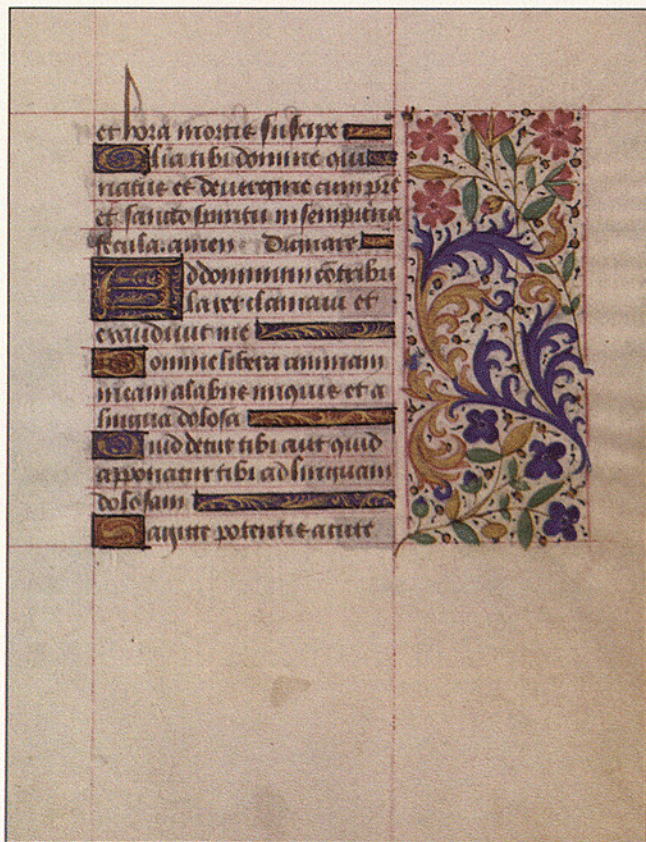 et hora mortis suscipe
Glia tibi domine qui
natus es de uirgine cum pre
et sancto spiritu in sempiterna
secula. amen Dignare
Ad dominum cōtribu
larer clamaui et
exaudiuit me
Domine libera animam
meam a labiis iniquis et a
lingua dolosa
Quid detur tibi aut quid
apponatur tibi ad linguam
dolosam
Sagitte potentis acute